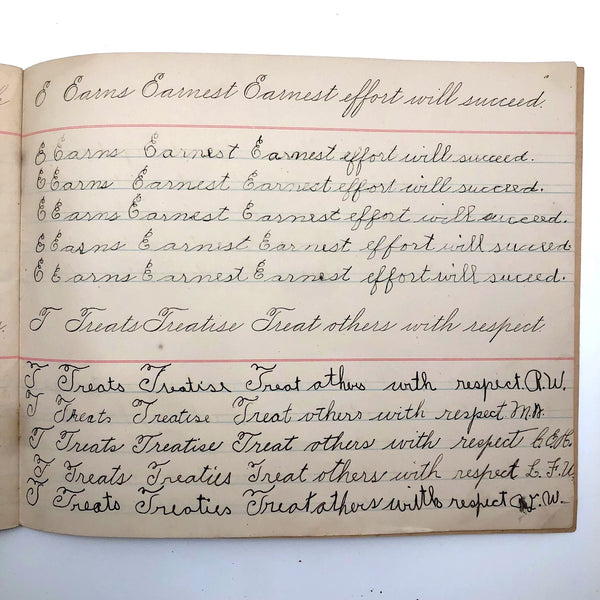 E Earns Earnest Earnest effort will succeed.
E Earns Earnest Earnest effort will succeed.
E Earns Earnest Earnest effort will succeed.
E Earns Earnest Earnest effort will succeed.
E Earns Earnest Earnest effort will succeed
E Earns Earnest Earnest effort will succeed.
T Treats Treatise Treat others with respect.
T Treats Treatise Treat athers with respect. R.W.
T Treats Treatise Treat others with respect. M.D.
T Treats Treatise Treat others with respect C.E.K.
T Treats Treaties Treat others with respect L. F. U.
T Treats Treaties Treat athers with respect W.